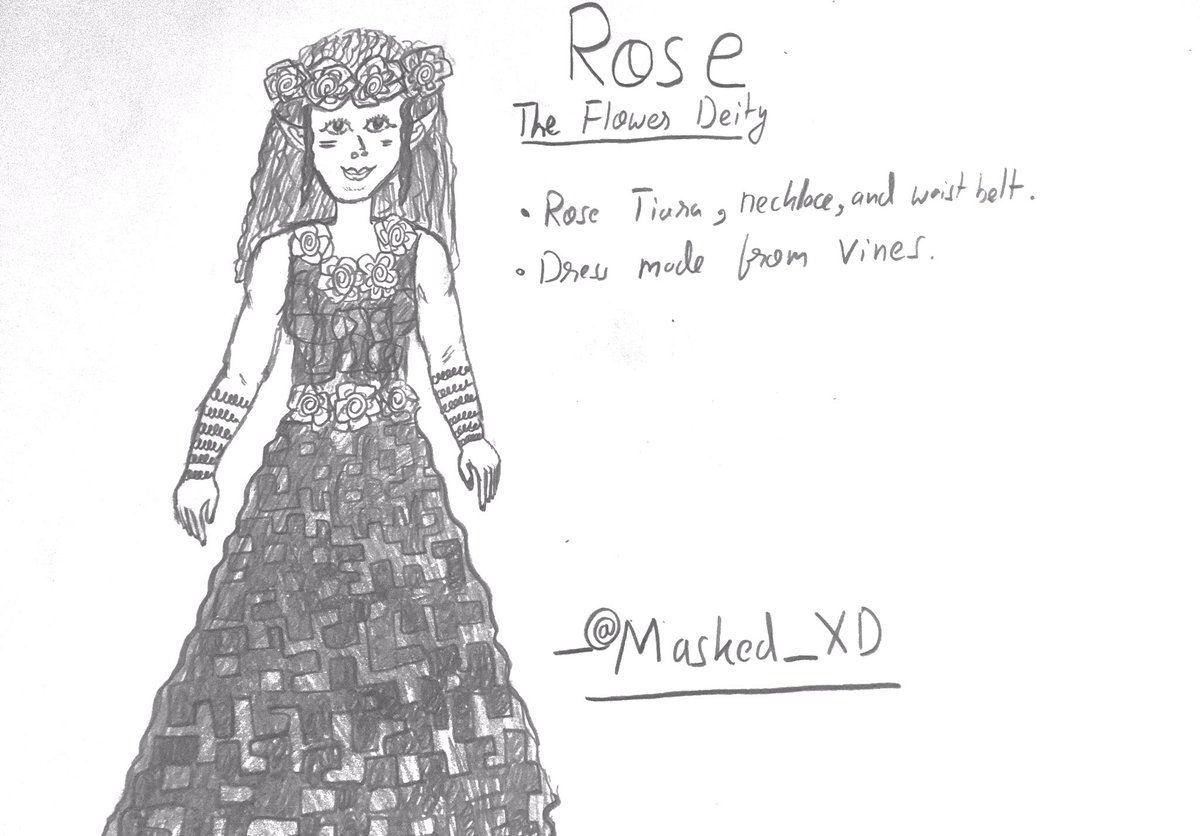 Rose
The Flower Deity
• Rose Tiara, necklace, and waist belt.
• Dress made from Vines.
_@Masked_XD